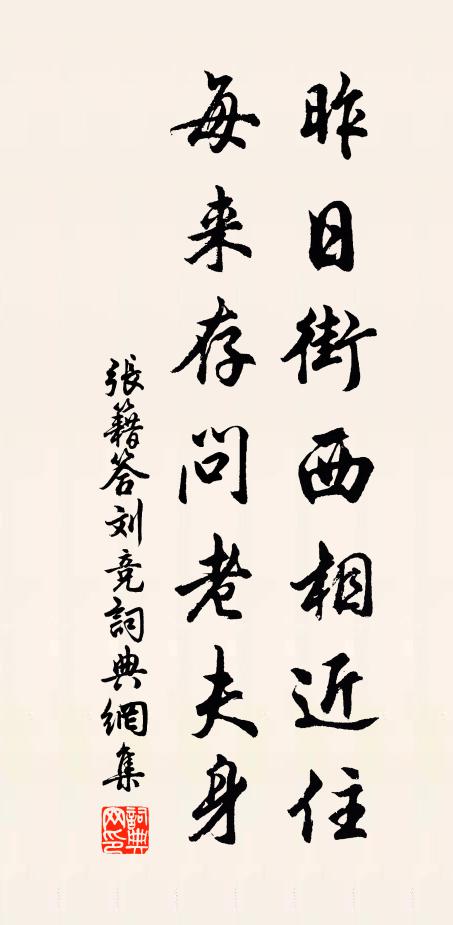 昨日街西相近住
每来存问老夫身
張籍答刘竞詞典網集
詞典网印